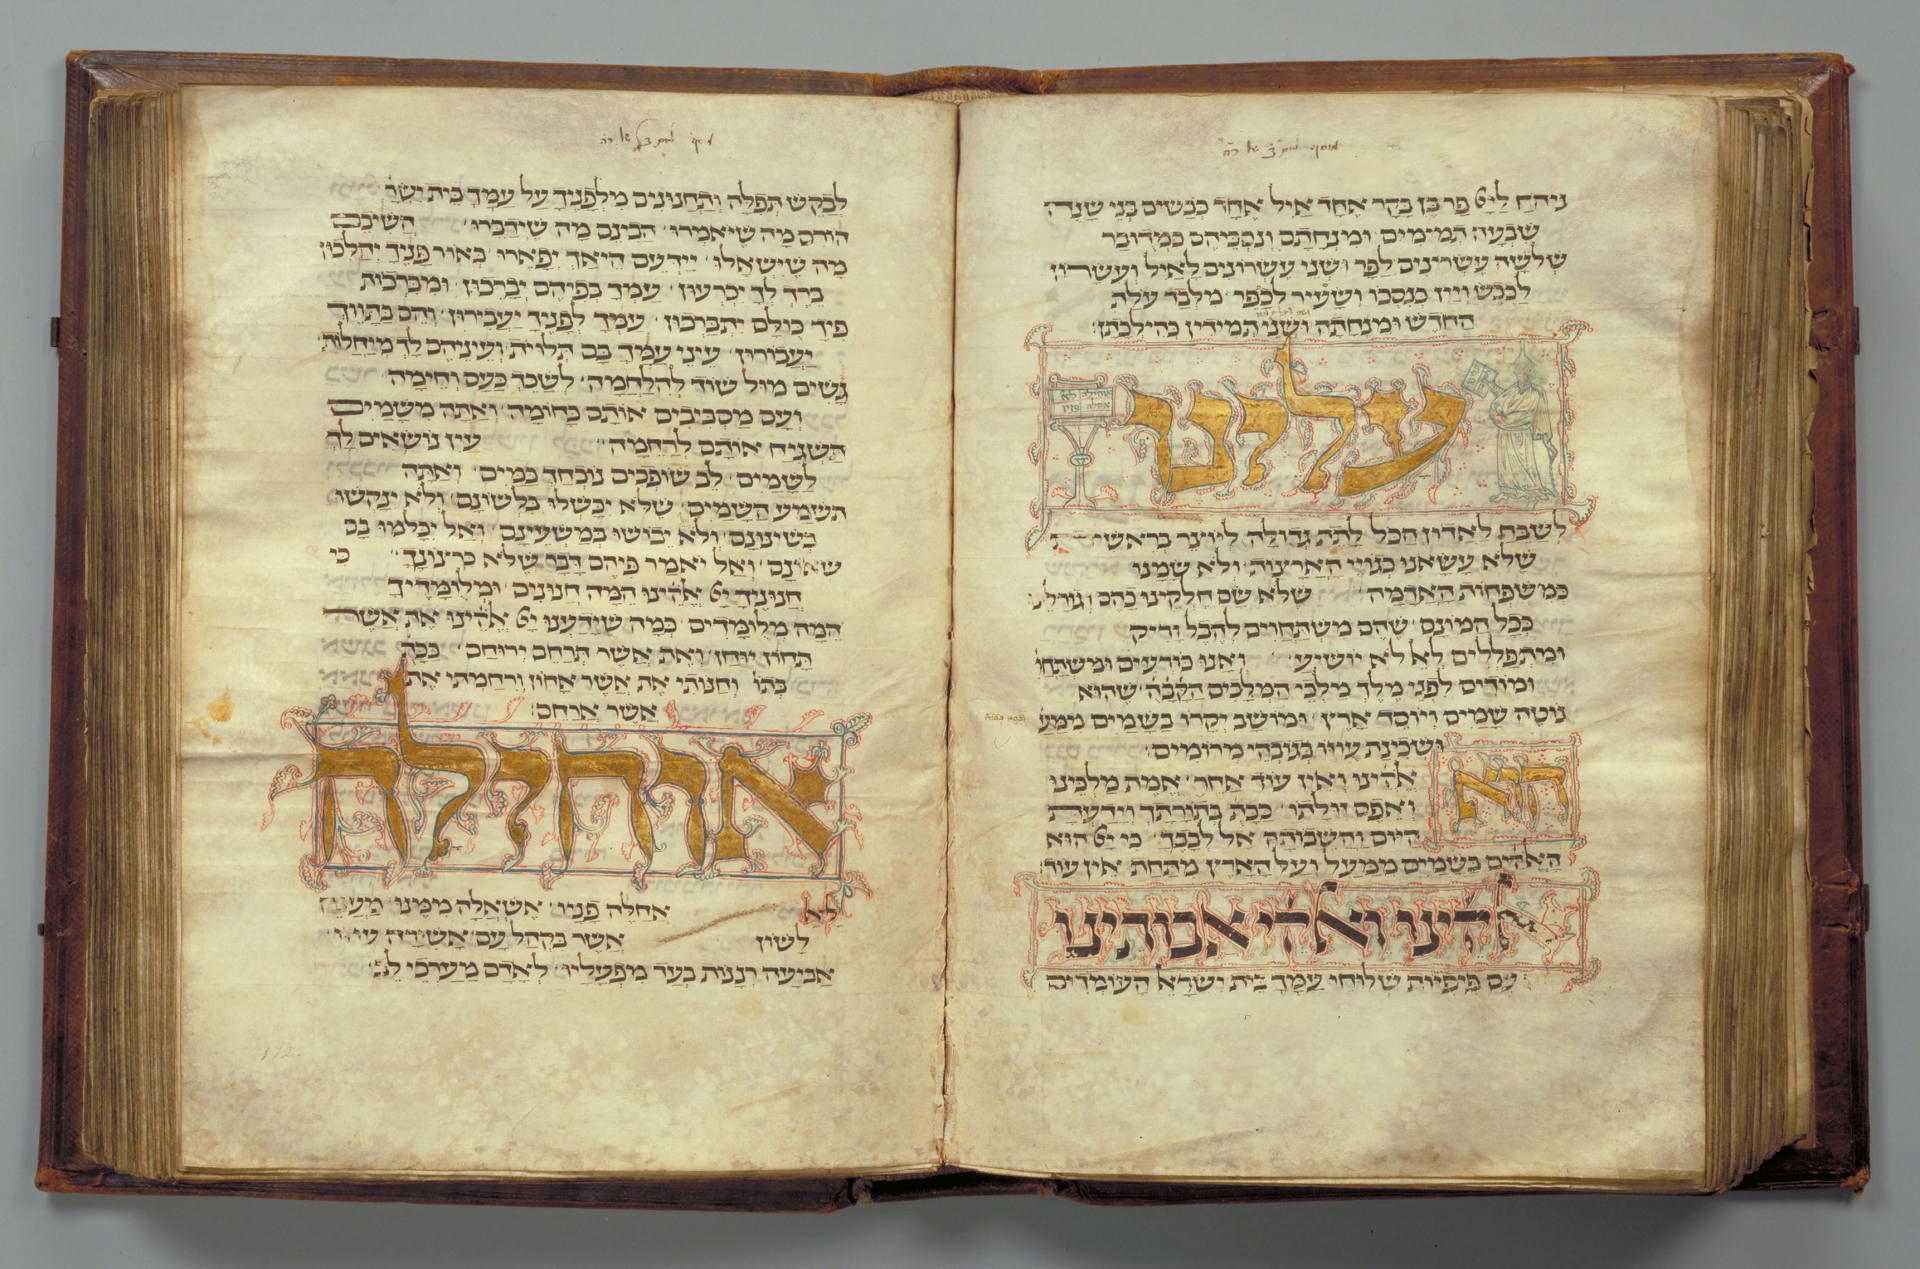 מוסף יום ב׳ של ר״ה
ניחח לי״י פר בן בקר אחד איל אחד כבשים בני שנה
שבעה תמימים ומנחתם ונסכיהם כמדובר
שלשה עשרונים לפר ושני עשרונים לאיל ועשרון
לכבש ויין כנסכו ושעיר לכפר מלבד עלת
החדש ומנחתה ושני תמידין כהילכתן
עלינו
לשבח לאדון הכל לתת גדולה ליוצר בראשית
שלא עשאנו כגויי הארצות ולא שמנו
כמשפחות האדמה שלא שם חלקינו כהם וגורלינו
ככל המונם שהם משתחוים להבל וריק
ומתפללים לאל לא יושיע ואנו כורעים ומשתחוי
ומודים לפני מלך מלכי המלכים הק׳ב׳ה׳ שהוא
נוטה שמים ויוסד ארץ ומושב יקרו בשמים ממעל
ושכינת עוזו בגובהי מרומים
הוא
אלהינו ואין עוד אחר אמת מלכינו
ואפס זולתו ככת׳ בתורתך וידעת
היום והשבות אל לבבך כי י״י הוא
האלהים בשמים ממעל ועל הארץ מתחת אין עוד
אלהינו ואלהי אבותינו
עם פיפיות שלוחי עמך בית ישראל העומדים
מוסף יום של ר״ה
לבקש תפלה ותחנונים מלפניך על עמך בית ישר׳
הורם מה שיאמרו הבינם מה שידברו השיבם
מה שישאלו יידעם היאך יפארו באור פניך יהלכון
ברך לך יכרעון עמך בפיהם יברכון ומברכות
פיך כולם יתברכון עמך לפניך יעבירון והם בתווך
יעבורון עיני עמך בם תלויות ועיניהם לך מיוחלות
גשים מול ארון קודש באימה לשכך כעס וחימה
ועם מסביבים אותם כחומה ואתה משמים
תשגיח אותם לרחמה עין נושאים לך
לשמים לב שופכים נוכחך כמים ואתה
תשמע השמים שלא יכשלו בלשונם ולא ינקשו
בשינונם ולא יבושו במשעינם ואל יכלמו בם
שאונם ואל יאמר פיהם דבר שלא כרצונך כי
חנוניך י״י אלהינו המה חנונים ומלומדיך
המה מלומדים כמה שידענו י״י אלהינו את אשר
תחון יוחן ואת אשר תרחם ירוחם ככת׳
בתו׳ וחנותי את אשר אחון ורחמתי את
אשר ארחם
אוחילה
לא
אחלה פניו אשאלה ממנו מענה
לשון
אשר בקהל עם אשירה עוזו
אביעה רננות בעד מפעליו לאדם מערכי לב